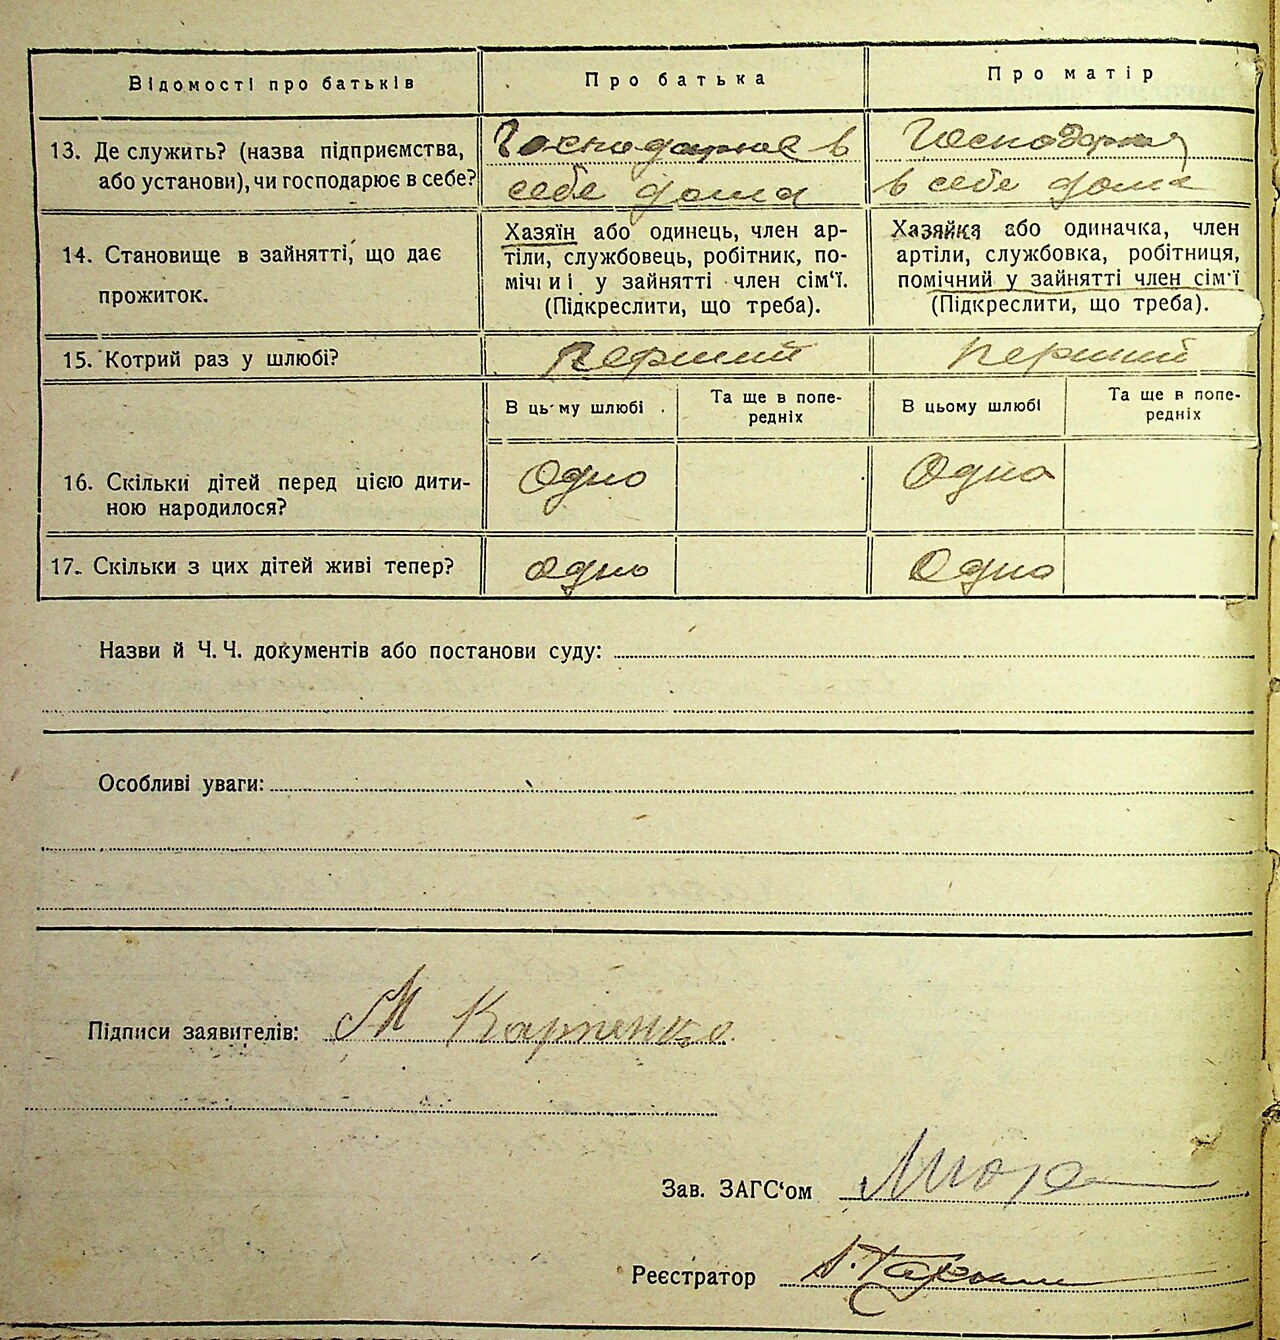 Відомості про батьків
Про батька
Про матір
13. Де служить? (назва підприємства,
або установи), чи господарює в себе?
Господарює в
себе дома
Господарює
в себе дома
14. Становище в зайнятті, що дає
прожиток.
Хазяїн або одинець, член ар-
тіли, службовець, робітник, по-
мічниі у зайнятті член сім'ї.
(Підкреслити, що треба).
Хазяйка або одиначка, член
артіли, службовка, робітниця,
помічний у зайнятті член сім'ї
(Підкреслити, що треба).
15. Котрий раз у шлюбі?
Перший
Перший
В цьому шлюбі
Та ще в попе-
редніх
В цьому шлюбі
Та ще в попе-
редніх
16. Скільки дітей перед цією дити-
ною народилося?
Одно
Одно
17. Скільки з цих дітей живі тепер?
одно
Одно
Назви й Ч. Ч. документів або постанови суду:
Особливі уваги:
Підписи заявителів: М Карпенко
Зав. ЗАГС'ом
Реєстратор